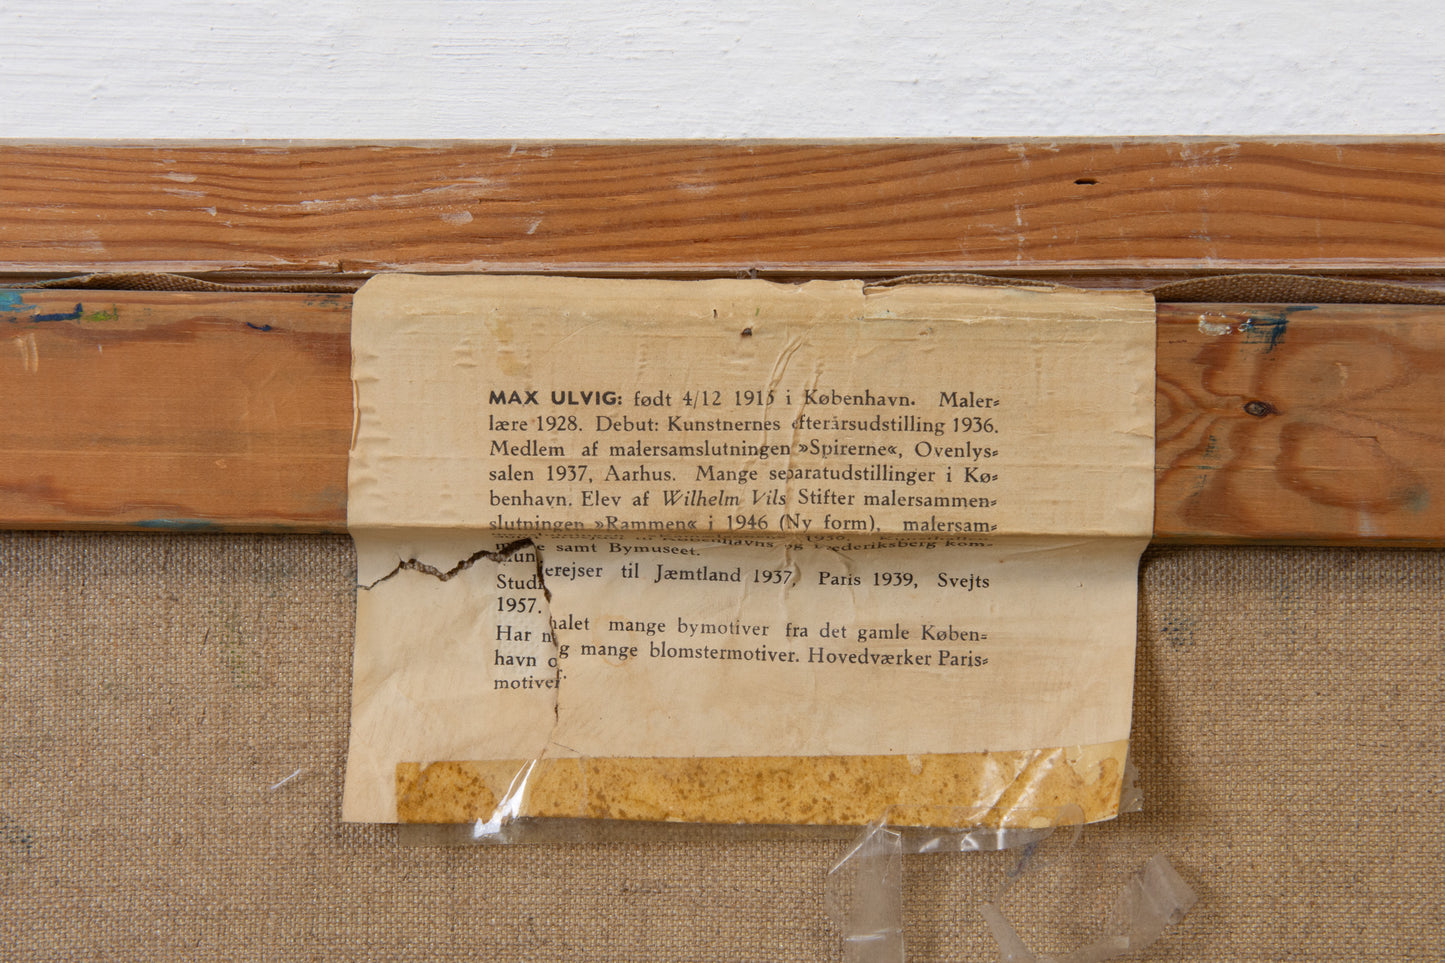 MAX ULVIG: født 4/12 1915 i København. Maler=
lære 1928. Debut: Kunstnernes efterårsudstilling 1936.
Medlem af malersamslutningen »Spirerne«, Ovenlys=
salen 1937, Aarhus. Mange separatudstillinger i Kø=
benhavn. Elev af Wilhelm Vils Stifter malersammen=
slutningen »Rammen« i 1946 (Ny form), malersam=
1950.
Københavns og Frederiksberg kom=
mune samt Bymuseet.
Studierejser til Jæmtland 1937, Paris 1939, Svejts
1957.
Har malet mange bymotiver fra det gamle Køben=
havn og mange blomstermotiver. Hovedværker Paris=
motiver.